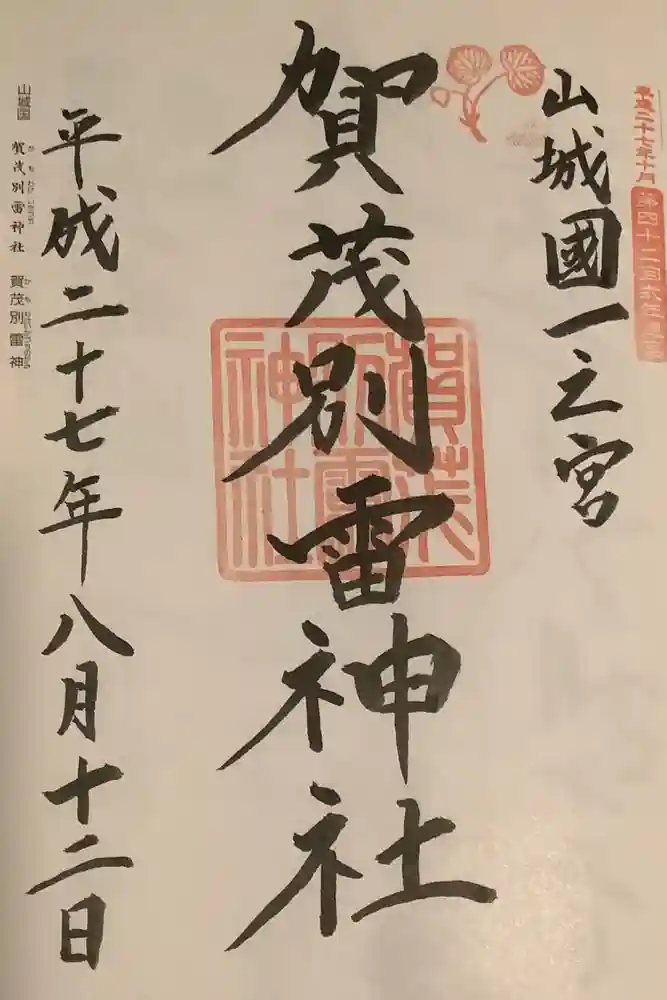 平成二十七年十月
第四十二回式年遷宮
山城國一之宮
賀茂別雷神社
賀茂
別雷
神社
平成二十七年八月十二日
山城国
賀茂別雷神社 賀茂別雷神